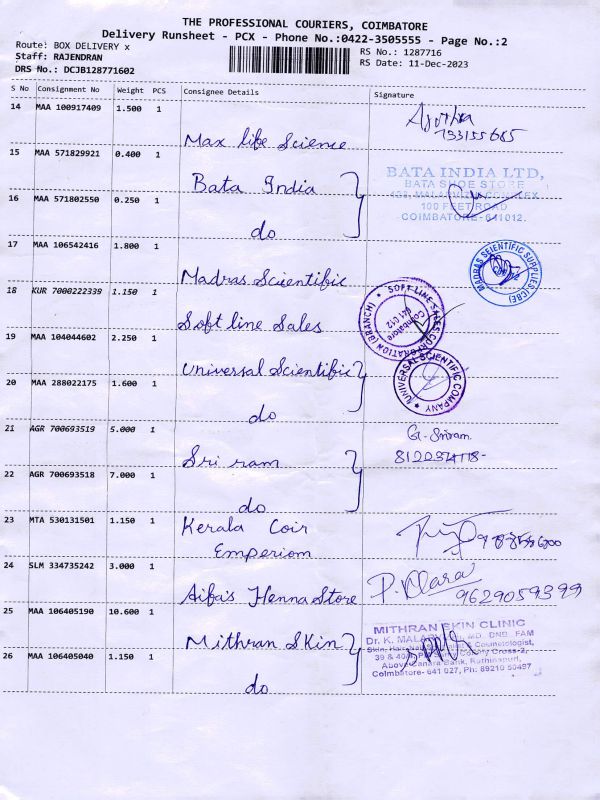 THE PROFESSIONAL COURIERS, COIMBATORE
Delivery Runsheet - PCX - Phone No.:0422-3505555 - Page No.:2
Route: BOX DELIVERY x
RS No.: 1287716
Staff: RAJENDRAN
RS Date: 11-Dec-2023
DRS No.: DCJB128771602
S No Consignment No Weight PCS Consignee Details Signature
14 MAA 100917409 1.500 1
Max life Science
15 MAA 571829921 0.400 1
Bata India
BATA INDIA LTD,
BATA SHOE STORE
100 FEET ROAD
COIMBATORE-641012.
16 MAA 571802550 0.250 1
do
17 MAA 106542416 1.800 1
Madras Scientific
MADRAS SCIENTIFIC SUPPLIES (CBE)
18 KUR 7000222339 1.150 1
Soft line Sales
SOFT LINE SALES CORPORATION (BRANCH)
Coimbatore
641 012
19 MAA 104044602 2.250 1
Universal Scientific
UNIVERSAL SCIENTIFIC COMPANY
20 MAA 288022175 1.600 1
do
21 AGR 700693519 5.000 1
Sri ram
G. Sriram
22 AGR 700693518 7.000 1
do
23 MTA 530131501 1.150 1
Kerala Coir
Emperiom
24 SLM 334735242 3.000 1
Aifa's Henna Store
P. Klara
9629059399
25 MAA 106405190 10.600 1
Mithran Skin
MITHRAN SKIN CLINIC
MD, DNB, FAM
Above Canara Bank, Rathinapuri,
Coimbatore- 641 027, Ph: 89210 50497
26 MAA 106405040 1.150 1
do